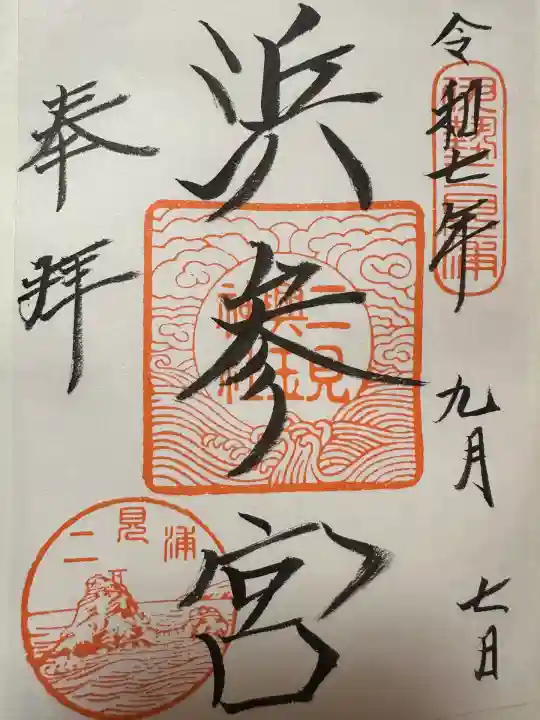 令和七年 九月 七日
伊勢二見浦
浜参宮
二見
興玉
神社
奉拝
二見浦